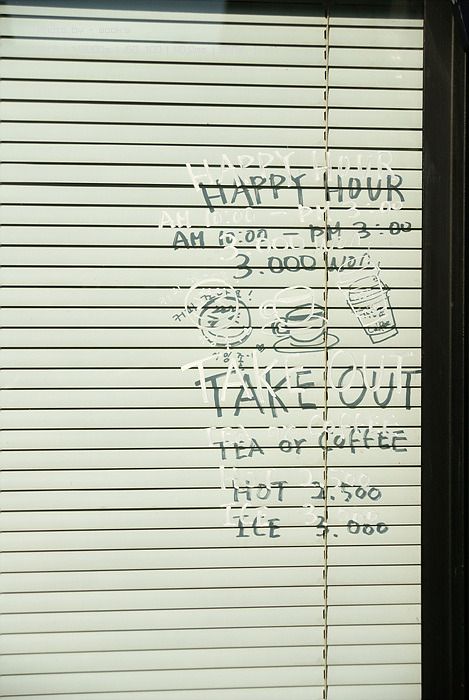 HAPPY HOUR
AM 10:00 — PM 3:00
3.000 won
Coffee
TAKE OUT
TEA or COFFEE
HOT 2.500
ICE 3.000